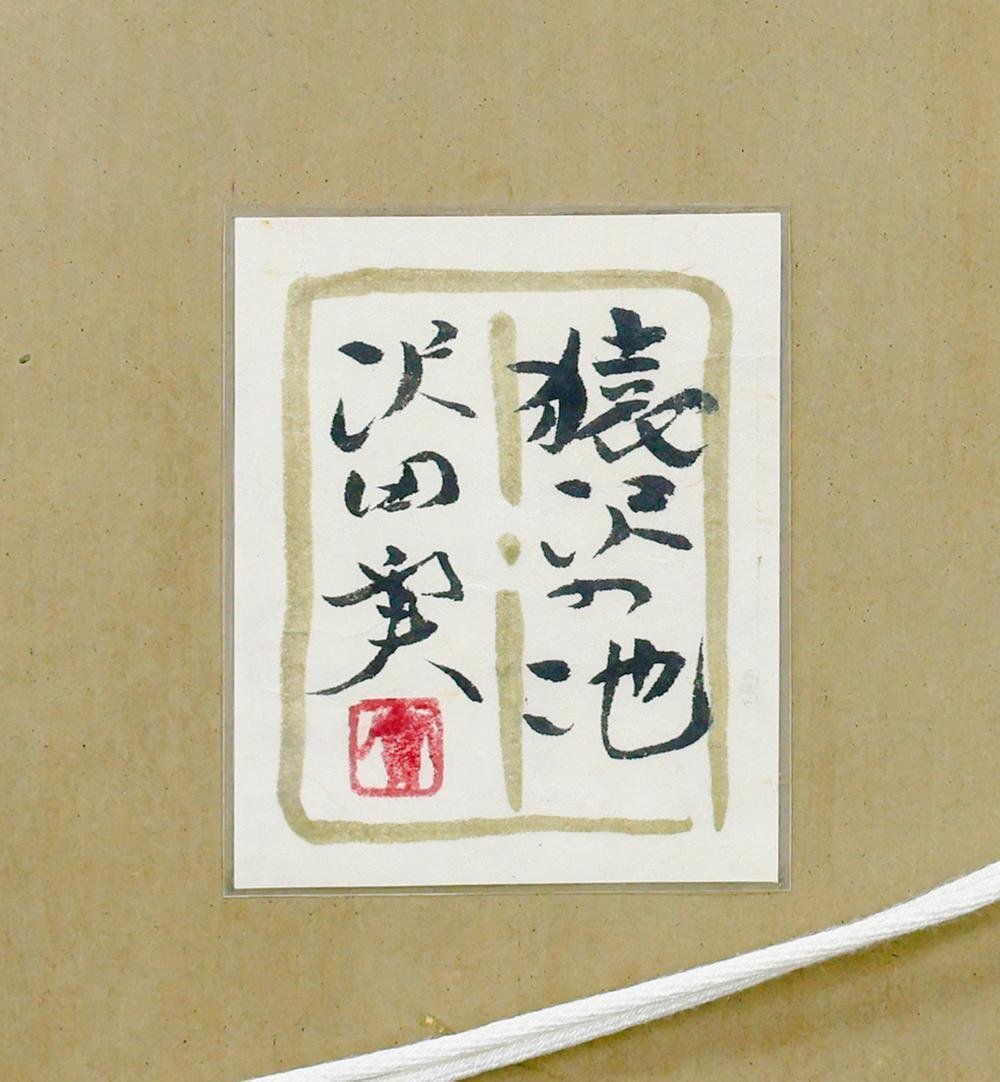 猿沢の池
沢田実